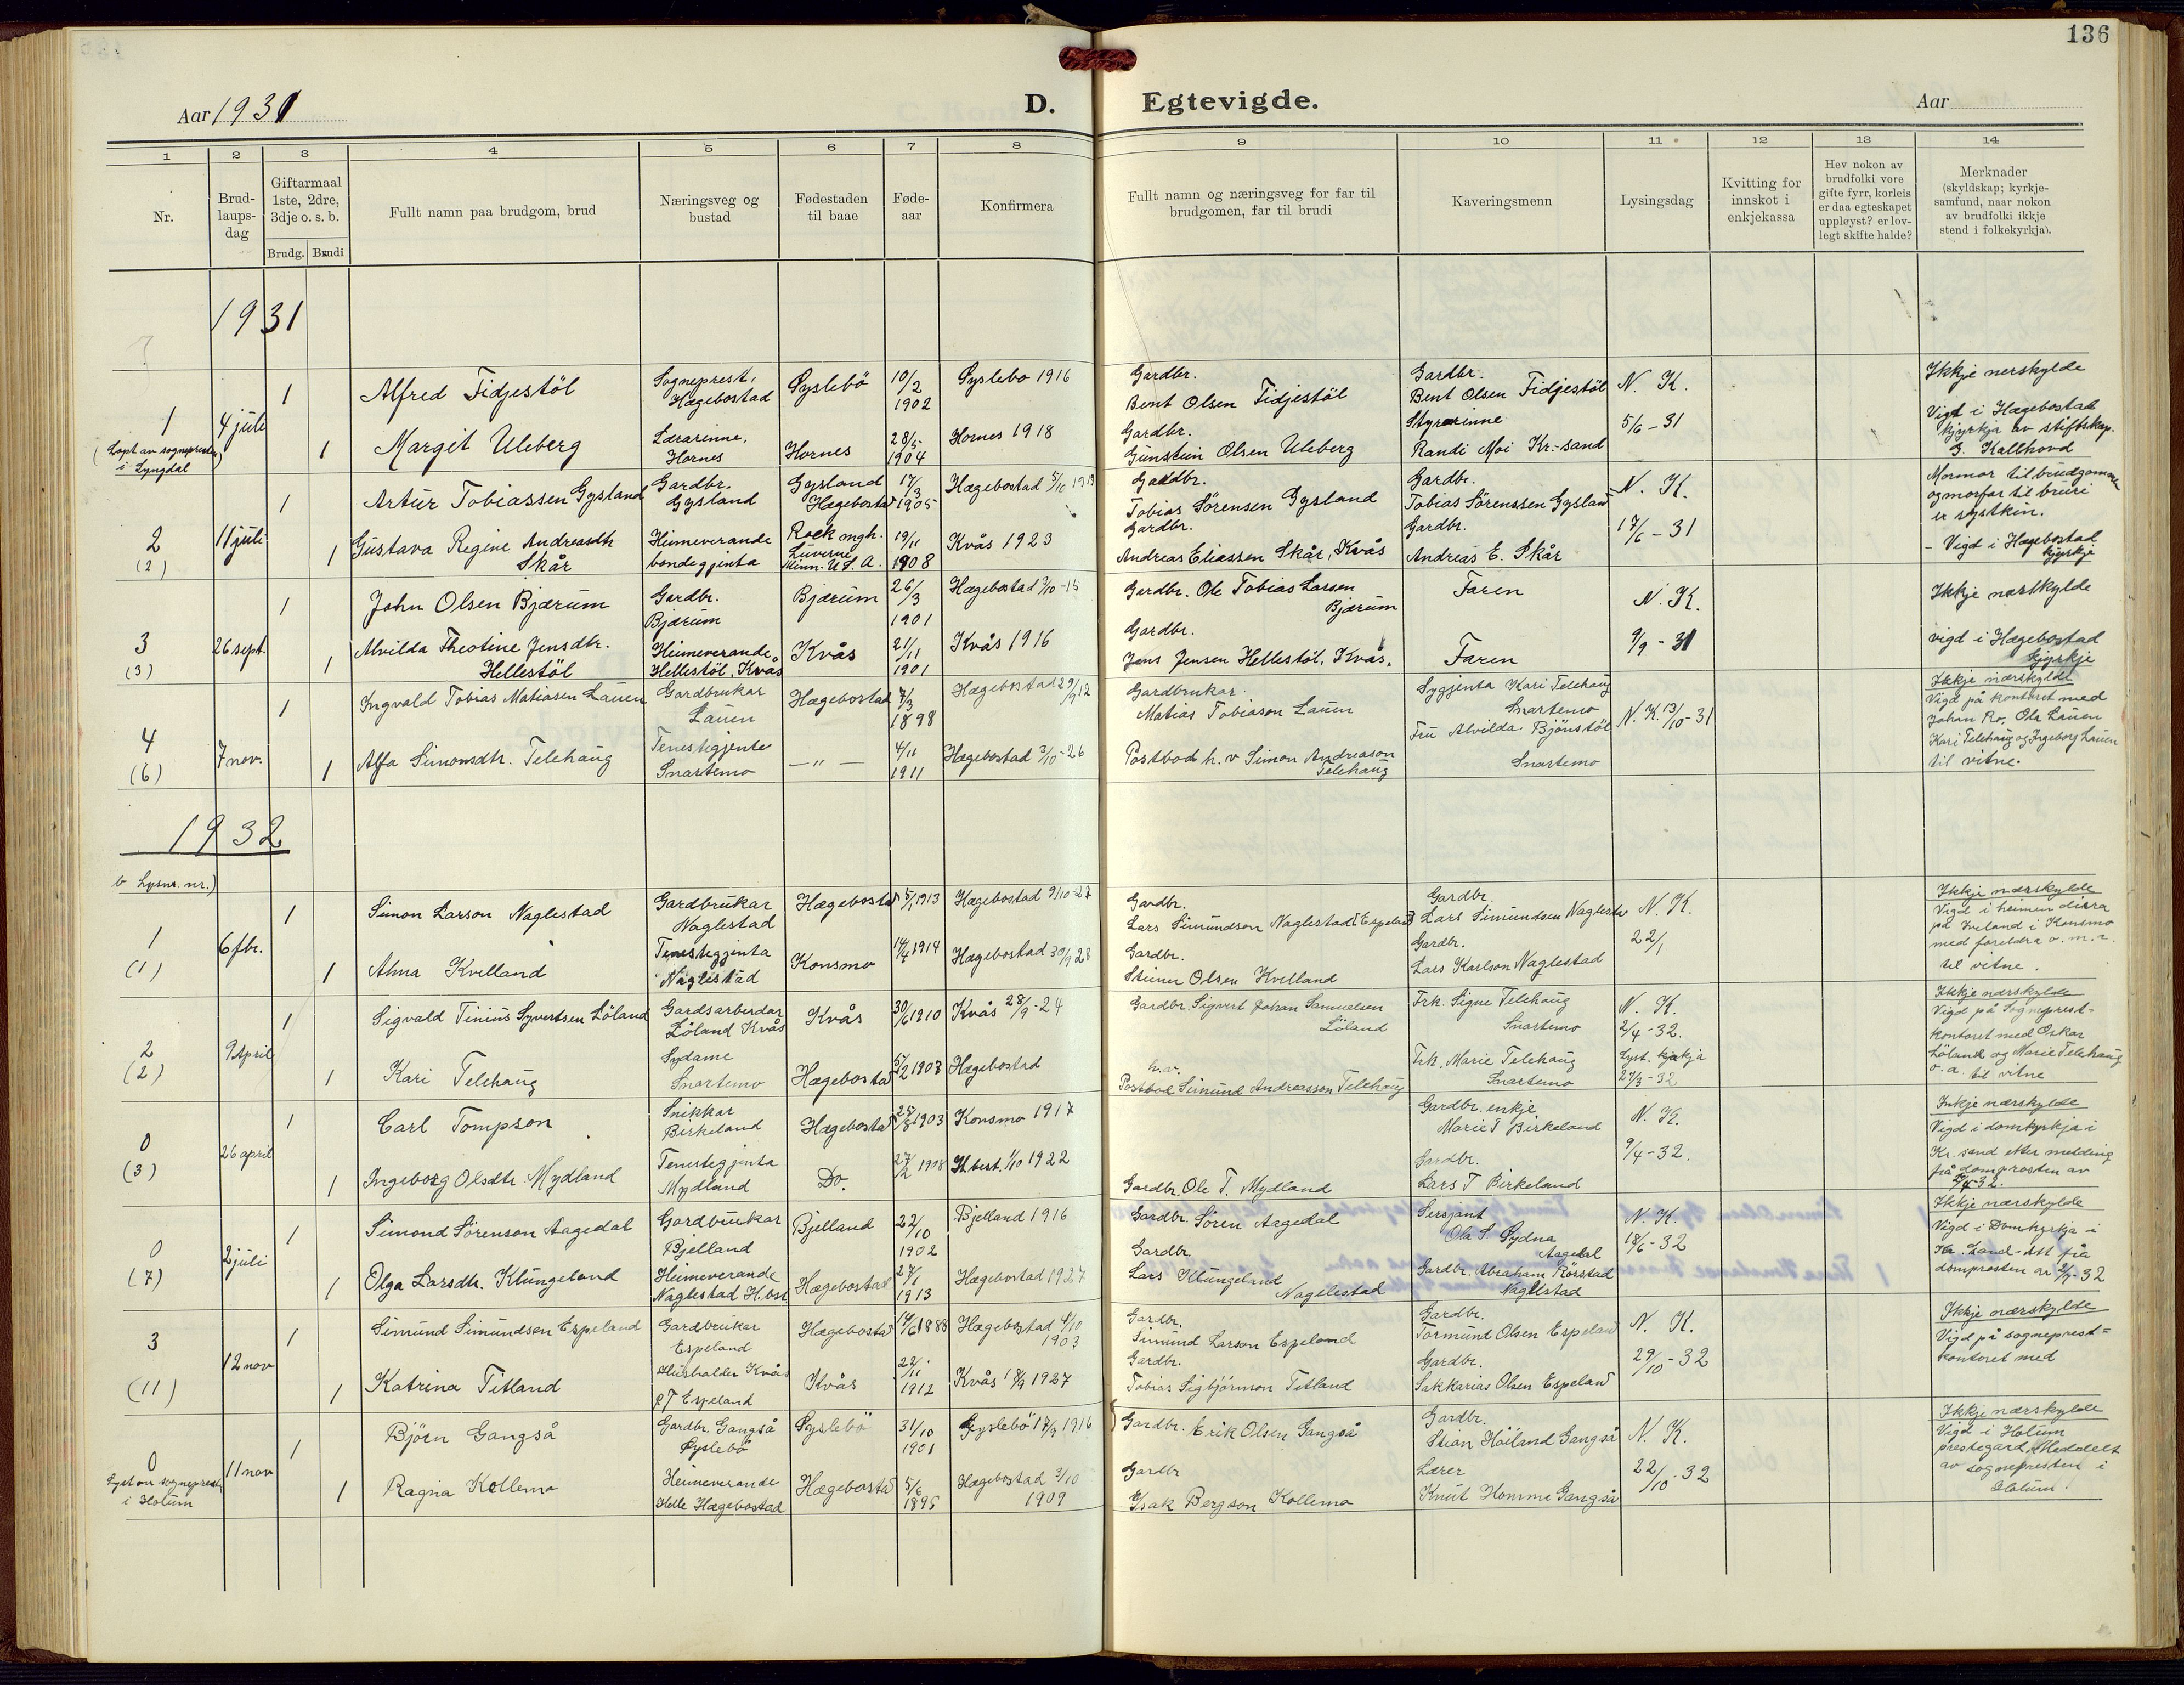 136
Aar 1931
D.
Egtevigde.
Aar
1 2 3 4 5 6 7 8 9 10 11 12 13 14
Nr.
Brud-
laups-
dag
Giftarmaal
1ste, 2dre,
3dje o. s. b.
Brudg. Brudi
Fullt namn paa brudgom, brud
Næringsveg og
bustad
Fødestaden
til baae
Føde-
aar
Konfirmera
Fullt namn og næringsveg for far til
brudgomen, far til brudi
Kaveringsmenn
Lysingsdag
Kvitting for
innskot i
enkjekassa
Hev nokon av
brudfolki vore
gifte fyrr, korleis
er daa egteskapet
uppløyst? er lov-
legt skifte halde?
Merknader
(skyldskap; kyrkje-
samfund, naar nokon
av brudfolki ikkje
stend i folkekyrkja).
1931
1
(Lyst av sogneprest
i Lyngdal)
4 juli
1
Alfred Fidjestöl
Sogneprest,
Hægebostad
Øyslebö
10/2
1902
Øyslebo 1916
Gardbr.
Bent Olsen Fidjestöl
Gardbr.
Bent Olsen Fidjestöl
N. K.
Ikkje nerskylde
1
Margit Uleberg
Lærarinne,
Hornes
Hornes
28/5
1904
Hornes 1918
Gardbr.
Gunstein Olsen Uleberg
Styrerinne
Randi Moi Kr.-sand
5/6 - 31
Vigd i Hægebostad
kyrkja av stiftskap.
G. Kallhovd
2
(2)
11 juli
1
Artur Tobiassen Gysland
Gardbr.
Gysland
Gysland
Hægebostad
17/3
1905
Hægebostad 5/10 1919
Gardbr.
Tobias Sörensen Gysland
Gardbr.
Tobias Sörenssen Gysland
N. K.
Mormor til brudgomen
og morfar til bruri
er systkin.
1
Gustava Regine Andreasdtr
Skår
Heimeverande
bondegjenta
Rock mgh.
Luverne
Minn. U.S.A.
19/11
1908
Kvås 1923
Gardbr.
Andreas Eliassen Skår, Kvås
Gardbr.
Andreas E. Skår
17/6 - 31
- Vigd i Hægebostad
kyrkje
3
(3)
26 sept.
1
John Olsen Bjærum
Gardbr.
Bjærum
Bjærum
26/3
1901
Hægebostad 3/10-15
Gardbr. Ole Tobias Larsen
Bjærum
Faren
N. K.
Ikkje nærskylde
1
Alvilda Theotine Jensdtr.
Hellestöl
Heimeverande,
Hellestöl, Kvås
Kvås
21/11
1901
Kvås 1916
Gardbr.
Jens Jensen Hellestöl, Kvås.
Faren
9/9 - 31
vigd i Hægebostad
kyrkje
4
(6)
7 nov.
1
Ingvald Tobias Matiasen Lauen
Gardbrukar
Lauen
Hægebostad
7/3
1898
Hægebostad 29/9 12
Gardbrukar
Matias Tobiason Lauen
Sygjenta Kari Telehaug
Snartemo
N. K. 13/10 - 31
Ikkje nærskylde
Vigd på kontoret med
Johan Ro, Ola Lauen
Kari Telehaug og Ingeborg Lauen
til vitne.
1
Alfa Simonsdtr. Telehaug
Tenestegjente
Snartemo
— " —
4/11
1911
Hægebostad 3/10 - 26
Postbod h. v Simon Andreason
Telehaug
Fru Alvilda Bjönstöl
Snartemo
1932
Lysn. nr.)
1
(1)
6 fbr.
1
Simon Larson Naglestad
Gardbrukar
Naglestad
Hægebostad
5/1 1913
Hægebostad 9/10-27
Gardbr.
Lars Simundson Naglestad [Espeland]
Gardbr.
Lars Simundsen Naglestad
N. K.
Ikkje nærskylde
Vigd i heimen dirra
på Iveland i Konsmo
med foreldra o. m. a.
til vitne.
1
Alma Kvelland
Tenestegjenta
Naglestad
Konsmo
14/4 1914
Hægebostad 30/9 28
Gardbr.
Steiner Olsen Kvelland
Gardbr.
Lars Karlson Naglestad
22/1
2
(2)
9 April
1
Sigvald Tinius Syvertsen Löland
Gardsarbeidar
Löland Kvås
Kvås
30/6 1910
Kvås 28/9 - 24
Gardbr. Sigvert Johan Samuelsen
Löland
Frk. Signe Telehaug
Snartemo
N. K.
2/4 - 32.
Ikkje nærskylde
Vigd på Sogneprest-
kontoret med Oskar
Löland og Marie Telehaug
o. a. til vitne
1
Kari Telehaug
Sydame
Snartemo
Hægebostad
5/2 1907
Hægebostad
h. v.
Postbod Simund Andreasson Telehaug
Frk. Marie Telehaug
Snartemo
Lyst. kyrkja
27/3 - 32
0
(3)
26 april
1
Carl Tompson
Snikkar
Birkeland
Hægebostad
27/8 1903
Konsmo 1917
Gardbr. enkje
Marie T Birkeland
N. K.
Inkje nærskylde
Vigd i domkyrkja i
Kr. sand etter melding
frå domprosten av
1
Ingeborg Olsdtr. Mydland
Tenestegjenta
Mydland
Do.
27/2 1908
H.bost. 1/10 1922
Gardbr. Ole T. Mydland
Gardbr.
Lars T Birkeland
9/4 - 32.
0
(7)
2 juli
1
Simond Sörenson Aagedal
Gardbrukar
Bjelland
Bjelland
22/10
1902
Bjelland 1916
Gardbr. Sören Aagedal
Sersjant
Ola S. Sydna
Aagedal
N. K.
18/6 - 32
Ikkje nærskylde
Vigd i Domkyrkja i
Kr. Sand - Att frå
domprosten av 2/7 - 32
1
Olga Larsdtr. Klungeland
Heimeverande
Naglestad H.bst
Hægebostad
27/1
1913
Hægebostad 1927
Gardbr.
Lars Klungeland
Naglestad
Gardbr. Abraham Rörstad
Naglstad
3
(11)
12 nov
1
Simund Simundsen Espeland
Gardbrukar
Espeland
Hægebostad
14/6 1888
Hægebostad 4/10
1903
Gardbr.
Simund Larson Espeland
Gardbr.
Tormund Olsen Espeland
N. K.
Ikkje nærskylde
Vigd på sogneprest=
kontoret med
1
Katrina Titland
Husholder Kvås
p.T Espeland
Kvås
22/11
1912
Kvås 18/9 1927
Gardbr.
Tobias Sigbjörnson Titland
Gardbr.
Sakkarias Olsen Espeland
29/10 - 32
0
Lyst av sogneprest
i Holum
11 nov
1
Björn Gangså
Gardbr. Gangså
Øyslebö
Øyslebö
31/10
1901
Øyslebö 17/9 1916
Gardbr. Erik Olsen Gangså
Gardbr.
Stian Håiland Gangså
N. K.
Ikkje nærskylde
Vigd i Holum
prestegard, Meddelt
av sognepresten i
Holum.
1
Ragna Kollemo
Heimeverande
Helle Hægebostad
Hægebostad
5/6
1895
Hægebostad 3/10
1909
Gardbr
Isak Bergson Kollemo
Lærer
Knut Homme Gangså
22/10 - 32